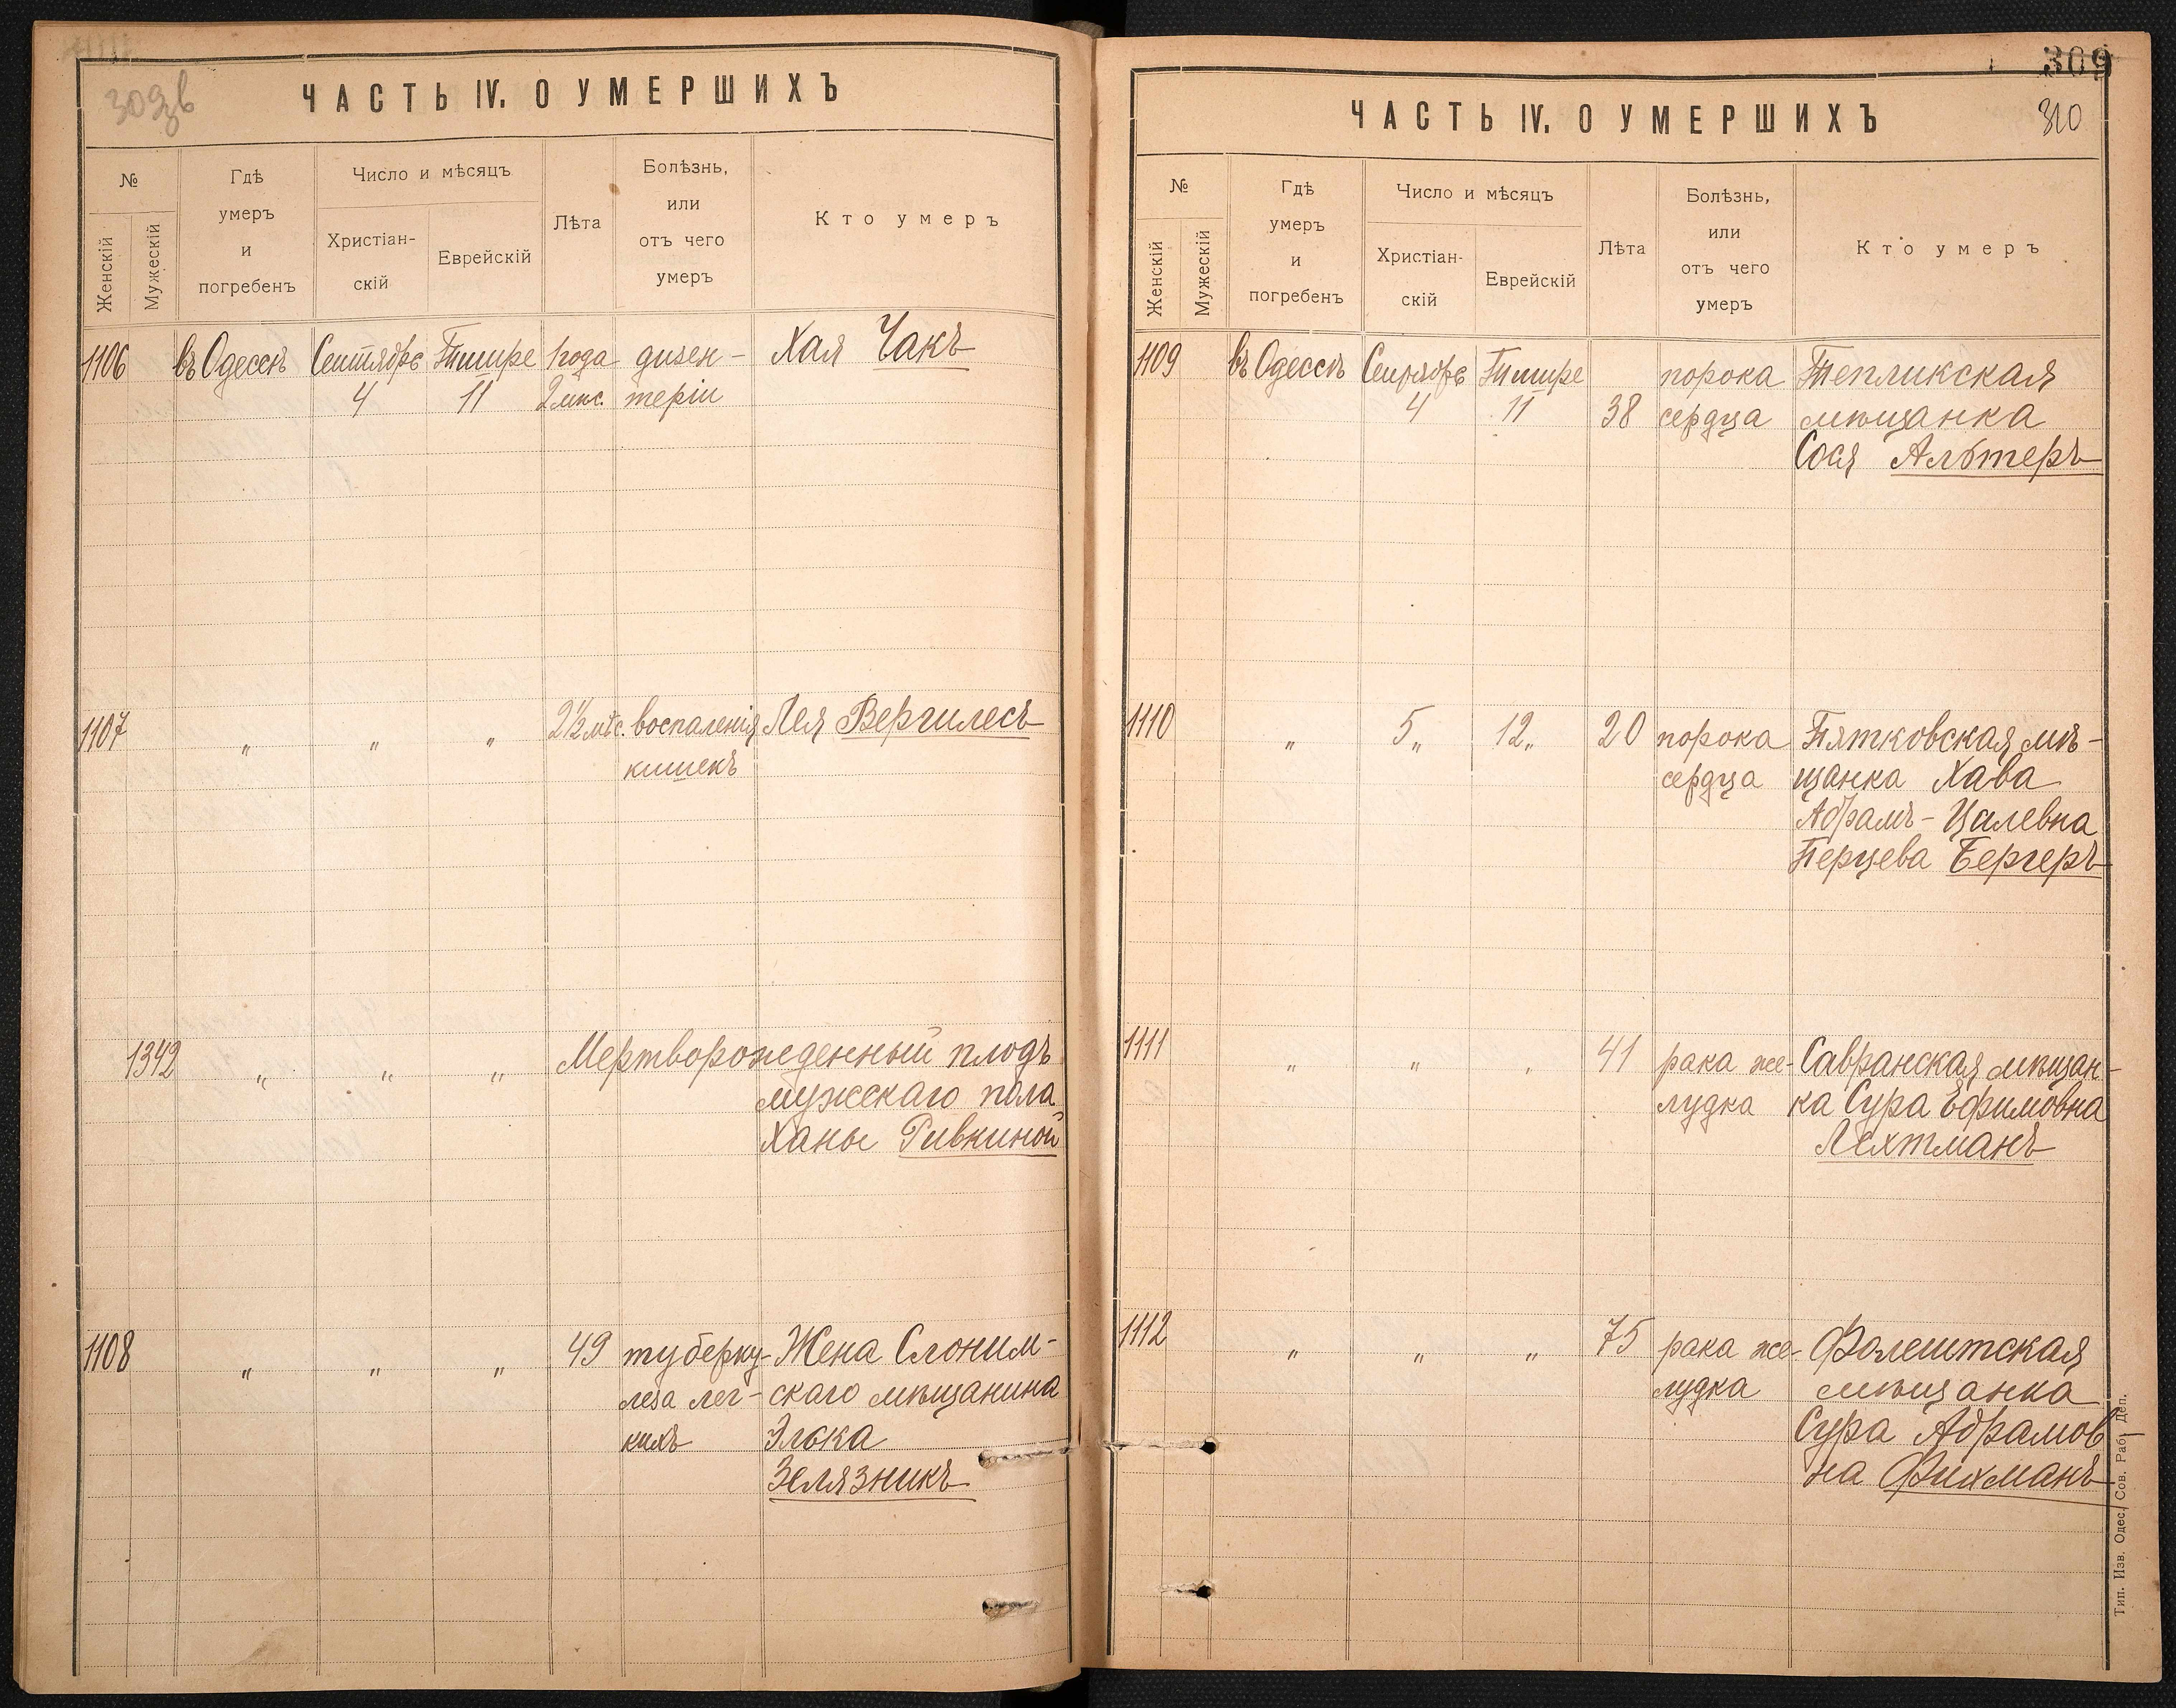 309зв
ЧАСТЬ IV. О УМЕРШИХЪ
№
Женскій
Мужескій
Гдѣ
умеръ
и
погребенъ
Число и мѣсяцъ
Христіан-
скій
Еврейскій
Лѣта
Болѣзнь,
или
отъ чего
умеръ
Кто умеръ
1106 въ Одессѣ Сентября Тишре 1 года дизен- Хая Чакъ
4 11 2 мѣс. теріи
1107 „ „ „ 2½ мѣс. воспаленія Лея Вергилесъ
кишекъ
1342 „ „ „ Мертворожденный плодъ
мужескаго пола
Ханы Ривкиной
1108 „ „ „ 49 туберку- Жена Слоним-
леза лег- скаго мѣщанина
кихъ Элька
Зелязникъ
309
310
ЧАСТЬ IV. О УМЕРШИХЪ
№
Женскій
Мужескій
Гдѣ
умеръ
и
погребенъ
Число и мѣсяцъ
Христіан-
скій
Еврейскій
Лѣта
Болѣзнь,
или
отъ чего
умеръ
Кто умеръ
1109 въ Одессѣ Сентября Тишре порока Тепликская
4 11 38 сердца мѣщанка
Сося Альтеръ
1110 „ 5„ 12„ 20 порока Пятковская мѣ-
сердца щанка Хава
Абрамъ-Цалевна
Перцева Бергеръ
1111 „ „ „ 41 рака же- Савранская мѣщан-
лудка ка Сура Ефимовна
Лехтманъ
1112 „ „ „ 75 рака же- Фалештская
лудка мѣщанка
Сура Абрамов
на Фихманъ
Тип. Изв. Одес. Сов. Раб. Деп.